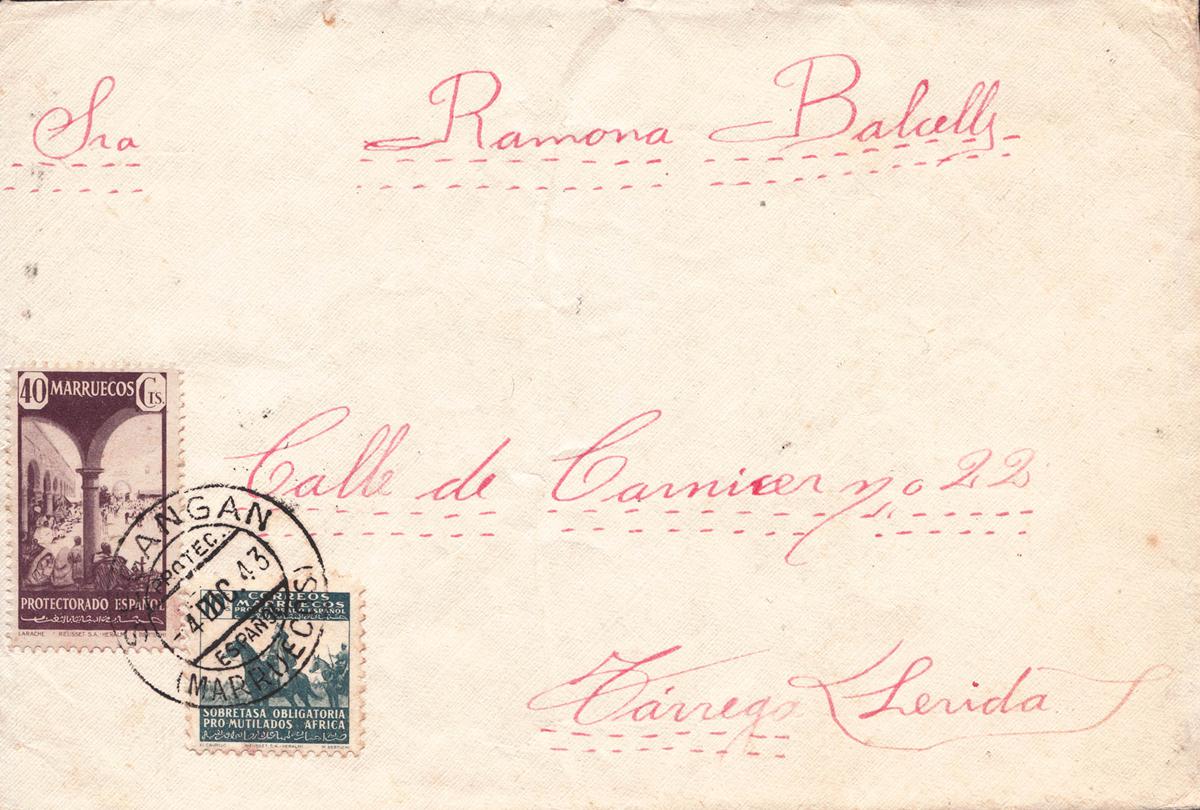 Sra Ramona Balcells
Calle de Carnicer nº 22
Tárrega (Lerida)
40 MARRUECOS CTS.
PROTECTORADO ESPAÑOL
LARACHE RIEUSSET S.A.-
ANGAN
PROTEC.
-4 DIC. 43
ESPAÑOL
(MARRUECOS)
CORREOS
MARRUECOS
PROTECTORADO ESPAÑOL
SOBRETASA OBLIGATORIA
PRO-MUTILADOS AFRICA